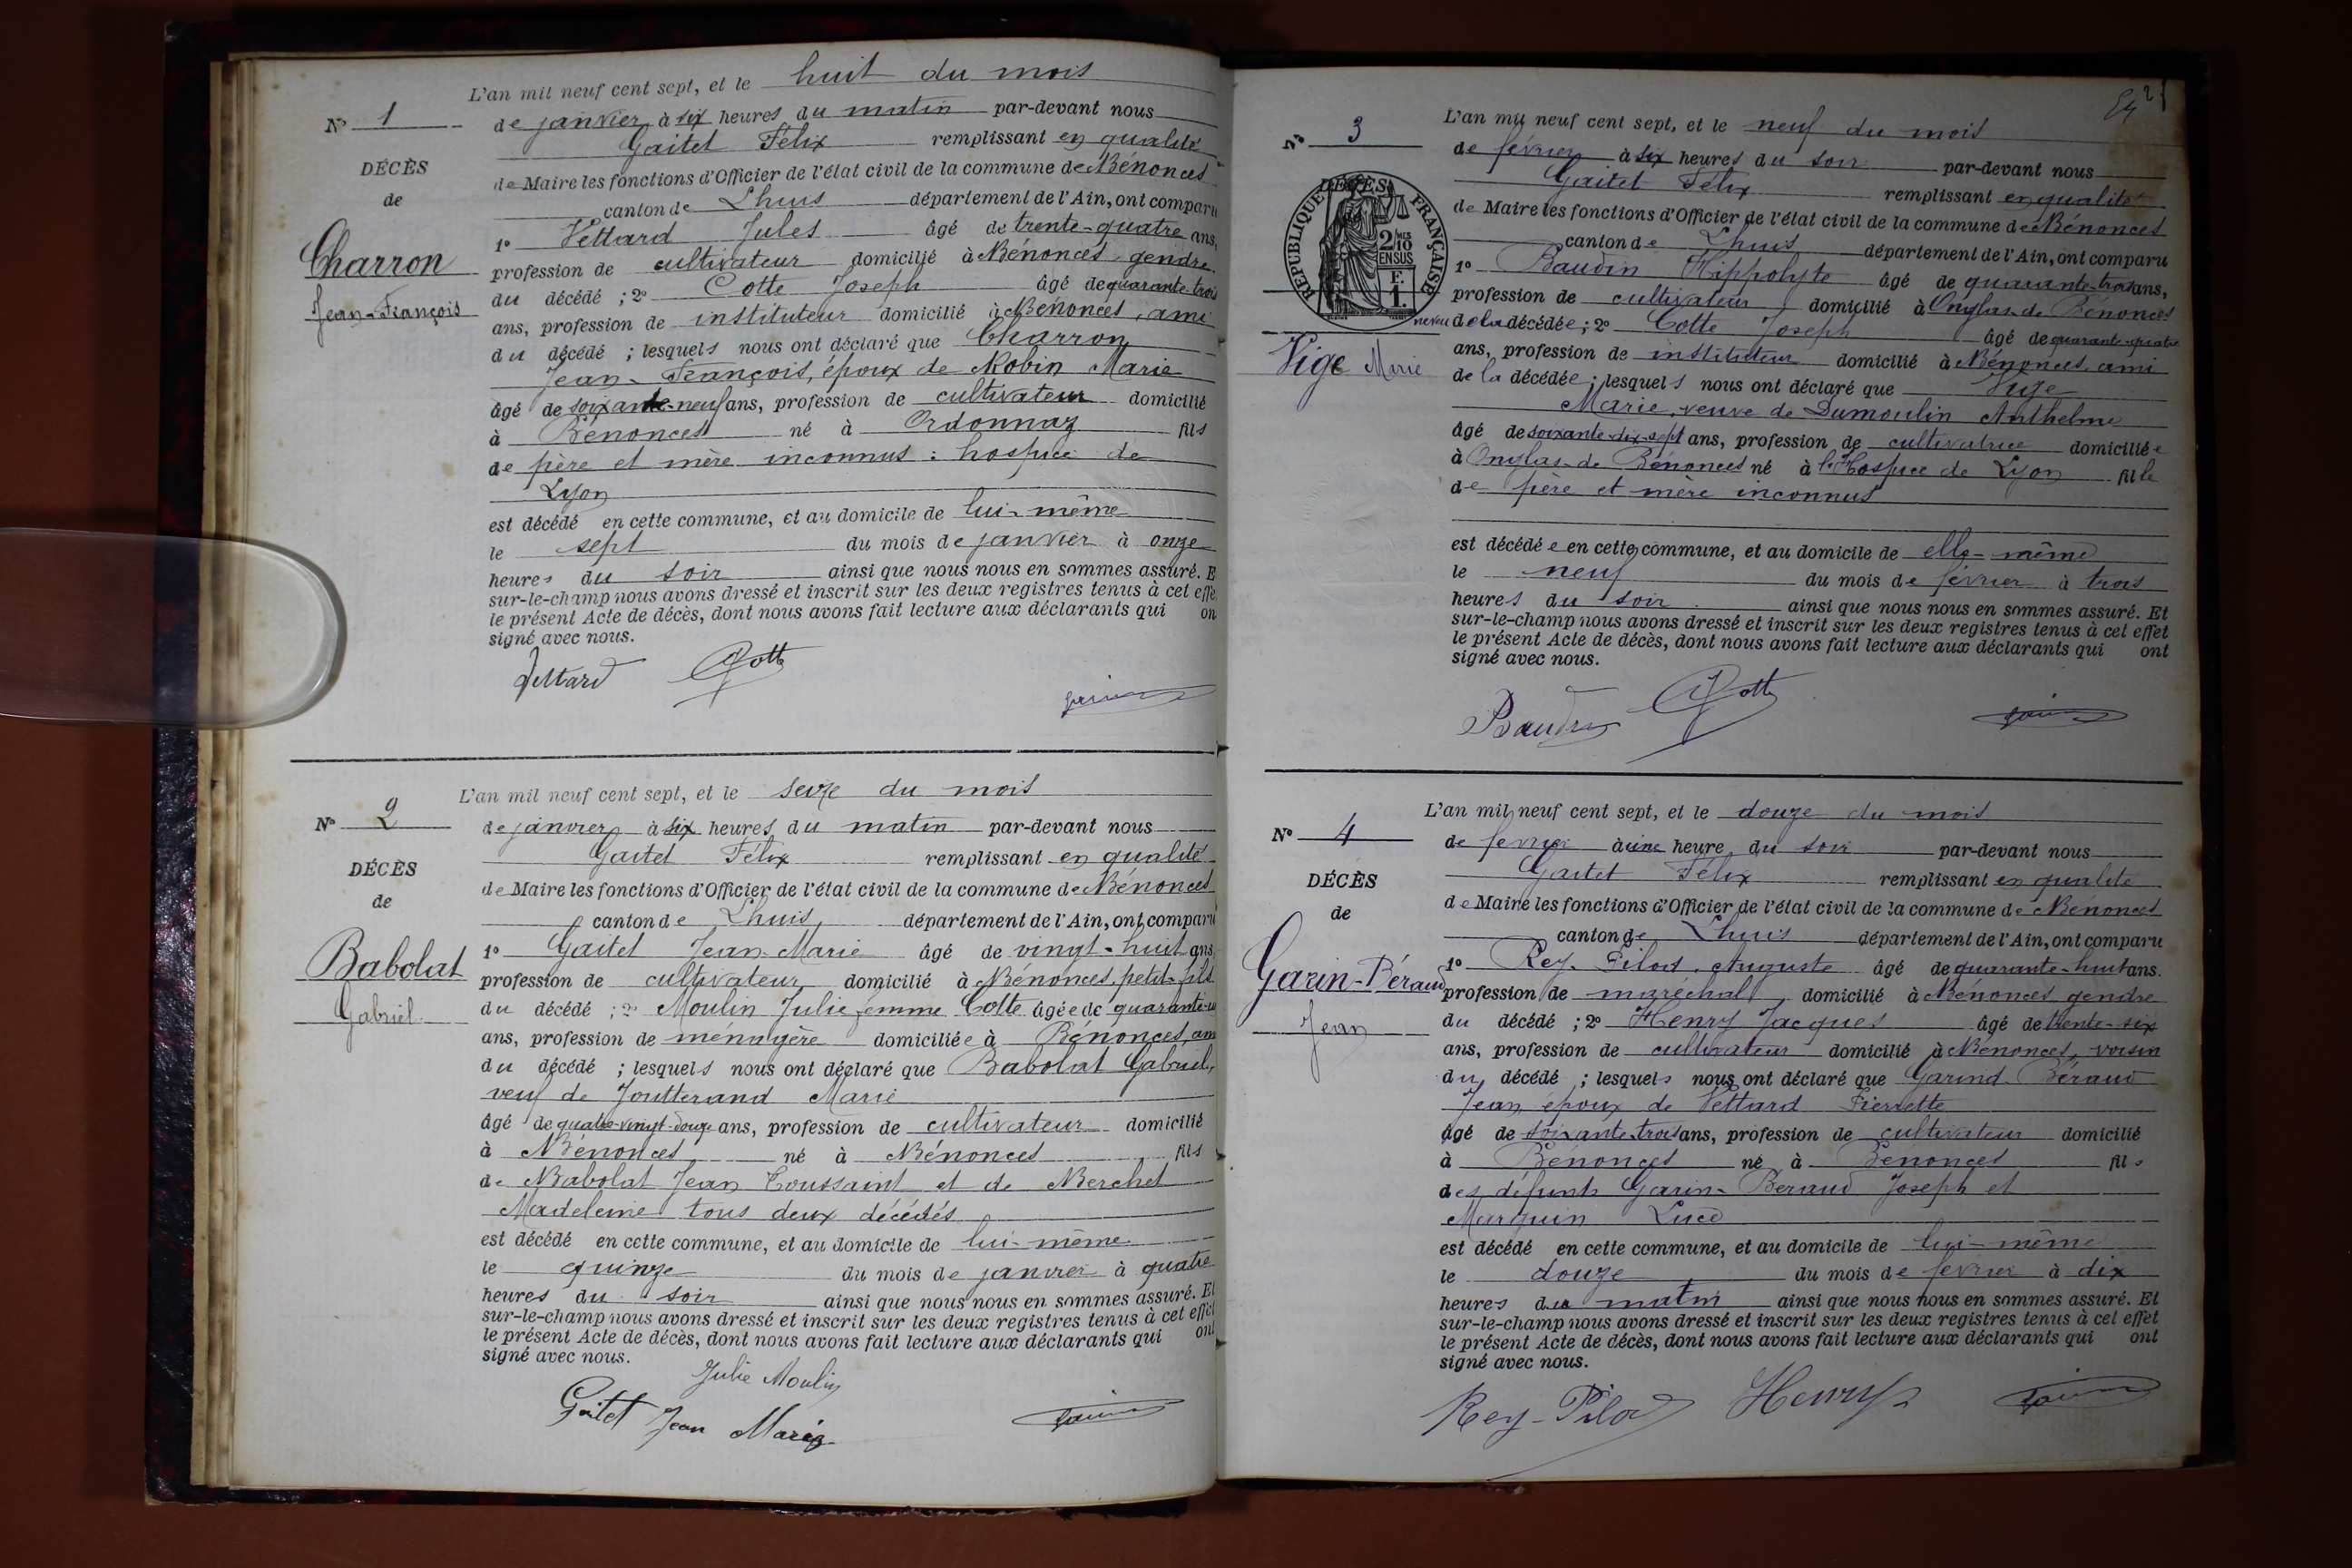 N° 1
DÉCÈS
de
Charron
Jean-François
L'an mil neuf cent sept, et le huit du mois
de janvier à six heures du matin par-devant nous
Gaitet Félix remplissant en qualité
de Maire les fonctions d'Officier de l'état civil de la commune de Bénonces
canton de Lhuis département de l'Ain, ont comparu
1° Vettard Jules âgé de trente-quatre ans,
profession de cultivateur domicilié à Bénonces, gendre
du décédé ; 2° Cotte Joseph âgé de quarante-trois
ans, profession de instituteur domicilié à Bénonces, ami
du décédé ; lesquels nous ont déclaré que Charron
Jean-François, époux de Robin Marie
âgé de soixante-neuf ans, profession de cultivateur domicilié
à Bénonces né à Ordonnaz fils
de père et mère inconnus : hospice de
Lyon
est décédé en cette commune, et au domicile de lui-même
le sept du mois de janvier à onze
heures du soir ainsi que nous nous en sommes assuré. E
sur-le-champ nous avons dressé et inscrit sur les deux registres tenus à cet effe
le présent Acte de décès, dont nous avons fait lecture aux déclarants qui on
signé avec nous.
Vettard Cotte
N° 2
DÉCÈS
de
Babolat
Gabriel
L'an mil neuf cent sept, et le seize du mois
de janvier à six heures du matin par-devant nous
Gaitet Félix remplissant en qualité
de Maire les fonctions d'Officier de l'état civil de la commune de Bénonces
canton de Lhuis département de l'Ain, ont comparu
1° Gaitet Jean-Marie âgé de vingt-huit ans,
profession de cultivateur domicilié à Bénonces, petit-fils
du décédé ; 2° Moulin Julie femme Cotte âgée de quarante-u
ans, profession de ménagère domiciliée à Bénonces, am
du décédé ; lesquels nous ont déclaré que Babolat Gabriel,
veuf de Joutterand Marie
âgé de quatre-vingt-douze ans, profession de cultivateur domicilié
à Bénonces né à Bénonces fils
de Babolat Jean Toussaint et de Berchet
Madeleine tous deux décédés
est décédé en cette commune, et au domicile de lui-même
le quinze du mois de janvier à quatre
heures du soir ainsi que nous nous en sommes assuré. Et
sur-le-champ nous avons dressé et inscrit sur les deux registres tenus à cet effet
le présent Acte de décès, dont nous avons fait lecture aux déclarants qui ont
signé avec nous.
Julie Moulin
Gaitet Jean Marie
N° 3
DÉCÈS
RÉPUBLIQUE FRANÇAISE
2/10 EN SUS
F. 1.
Vige Marie
L'an mil neuf cent sept, et le neuf du mois
de février à six heures du soir par-devant nous
Gaitet Félix remplissant en qualité
de Maire les fonctions d'Officier de l'état civil de la commune de Bénonces
canton de Lhuis département de l'Ain, ont comparu
1° Baudin Hippolyte âgé de quarante-trois ans,
profession de cultivateur domicilié à Onglas de Bénonces
neveu de la décédée ; 2° Cotte Joseph âgé de quarante-quatre
ans, profession de instituteur domicilié à Bénonces, ami
de la décédée ; lesquels nous ont déclaré que Vige
Marie, veuve de Dumoulin Anthelme
âgé de soixante-dix-sept ans, profession de cultivatrice domiciliée
à Onglas de Bénonces né à l'Hospice de Lyon fille
de père et mère inconnus
est décédée en cette commune, et au domicile de elle-même
le neuf du mois de février à trois
heures du soir ainsi que nous nous en sommes assuré. Et
sur-le-champ nous avons dressé et inscrit sur les deux registres tenus à cet effet
le présent Acte de décès, dont nous avons fait lecture aux déclarants qui ont
signé avec nous.
Baudin Cotte
N° 4
DÉCÈS
de
Garin-Béraud
Jean
L'an mil neuf cent sept, et le douze du mois
de fevrier à une heure du soir par-devant nous
Gaitet Félix remplissant en qualité
de Maire les fonctions d'Officier de l'état civil de la commune de Bénonces
canton de Lhuis département de l'Ain, ont comparu
1° Rey-Pilod Auguste âgé de quarante-huit ans.
profession de maréchal domicilié à Bénonces gendre
du décédé ; 2° Henry Jacques âgé de trente-six
ans, profession de cultivateur domicilié à Bénonces, voisin
du décédé ; lesquels nous ont déclaré que Garind-Béraud
Jean époux de Vettard Pierrette
âgé de soixante-trois ans, profession de cultivateur domicilié
à Bénonces né à Bénonces fils
des défunts Garin-Beraud Joseph et
Marquin Luce
est décédé en cette commune, et au domicile de lui-même
le douze du mois de fevrier à dix
heures du matin ainsi que nous nous en sommes assuré. Et
sur-le-champ nous avons dressé et inscrit sur les deux registres tenus à cet effet
le présent Acte de décès, dont nous avons fait lecture aux déclarants qui ont
signé avec nous.
Rey-Pilod Henry